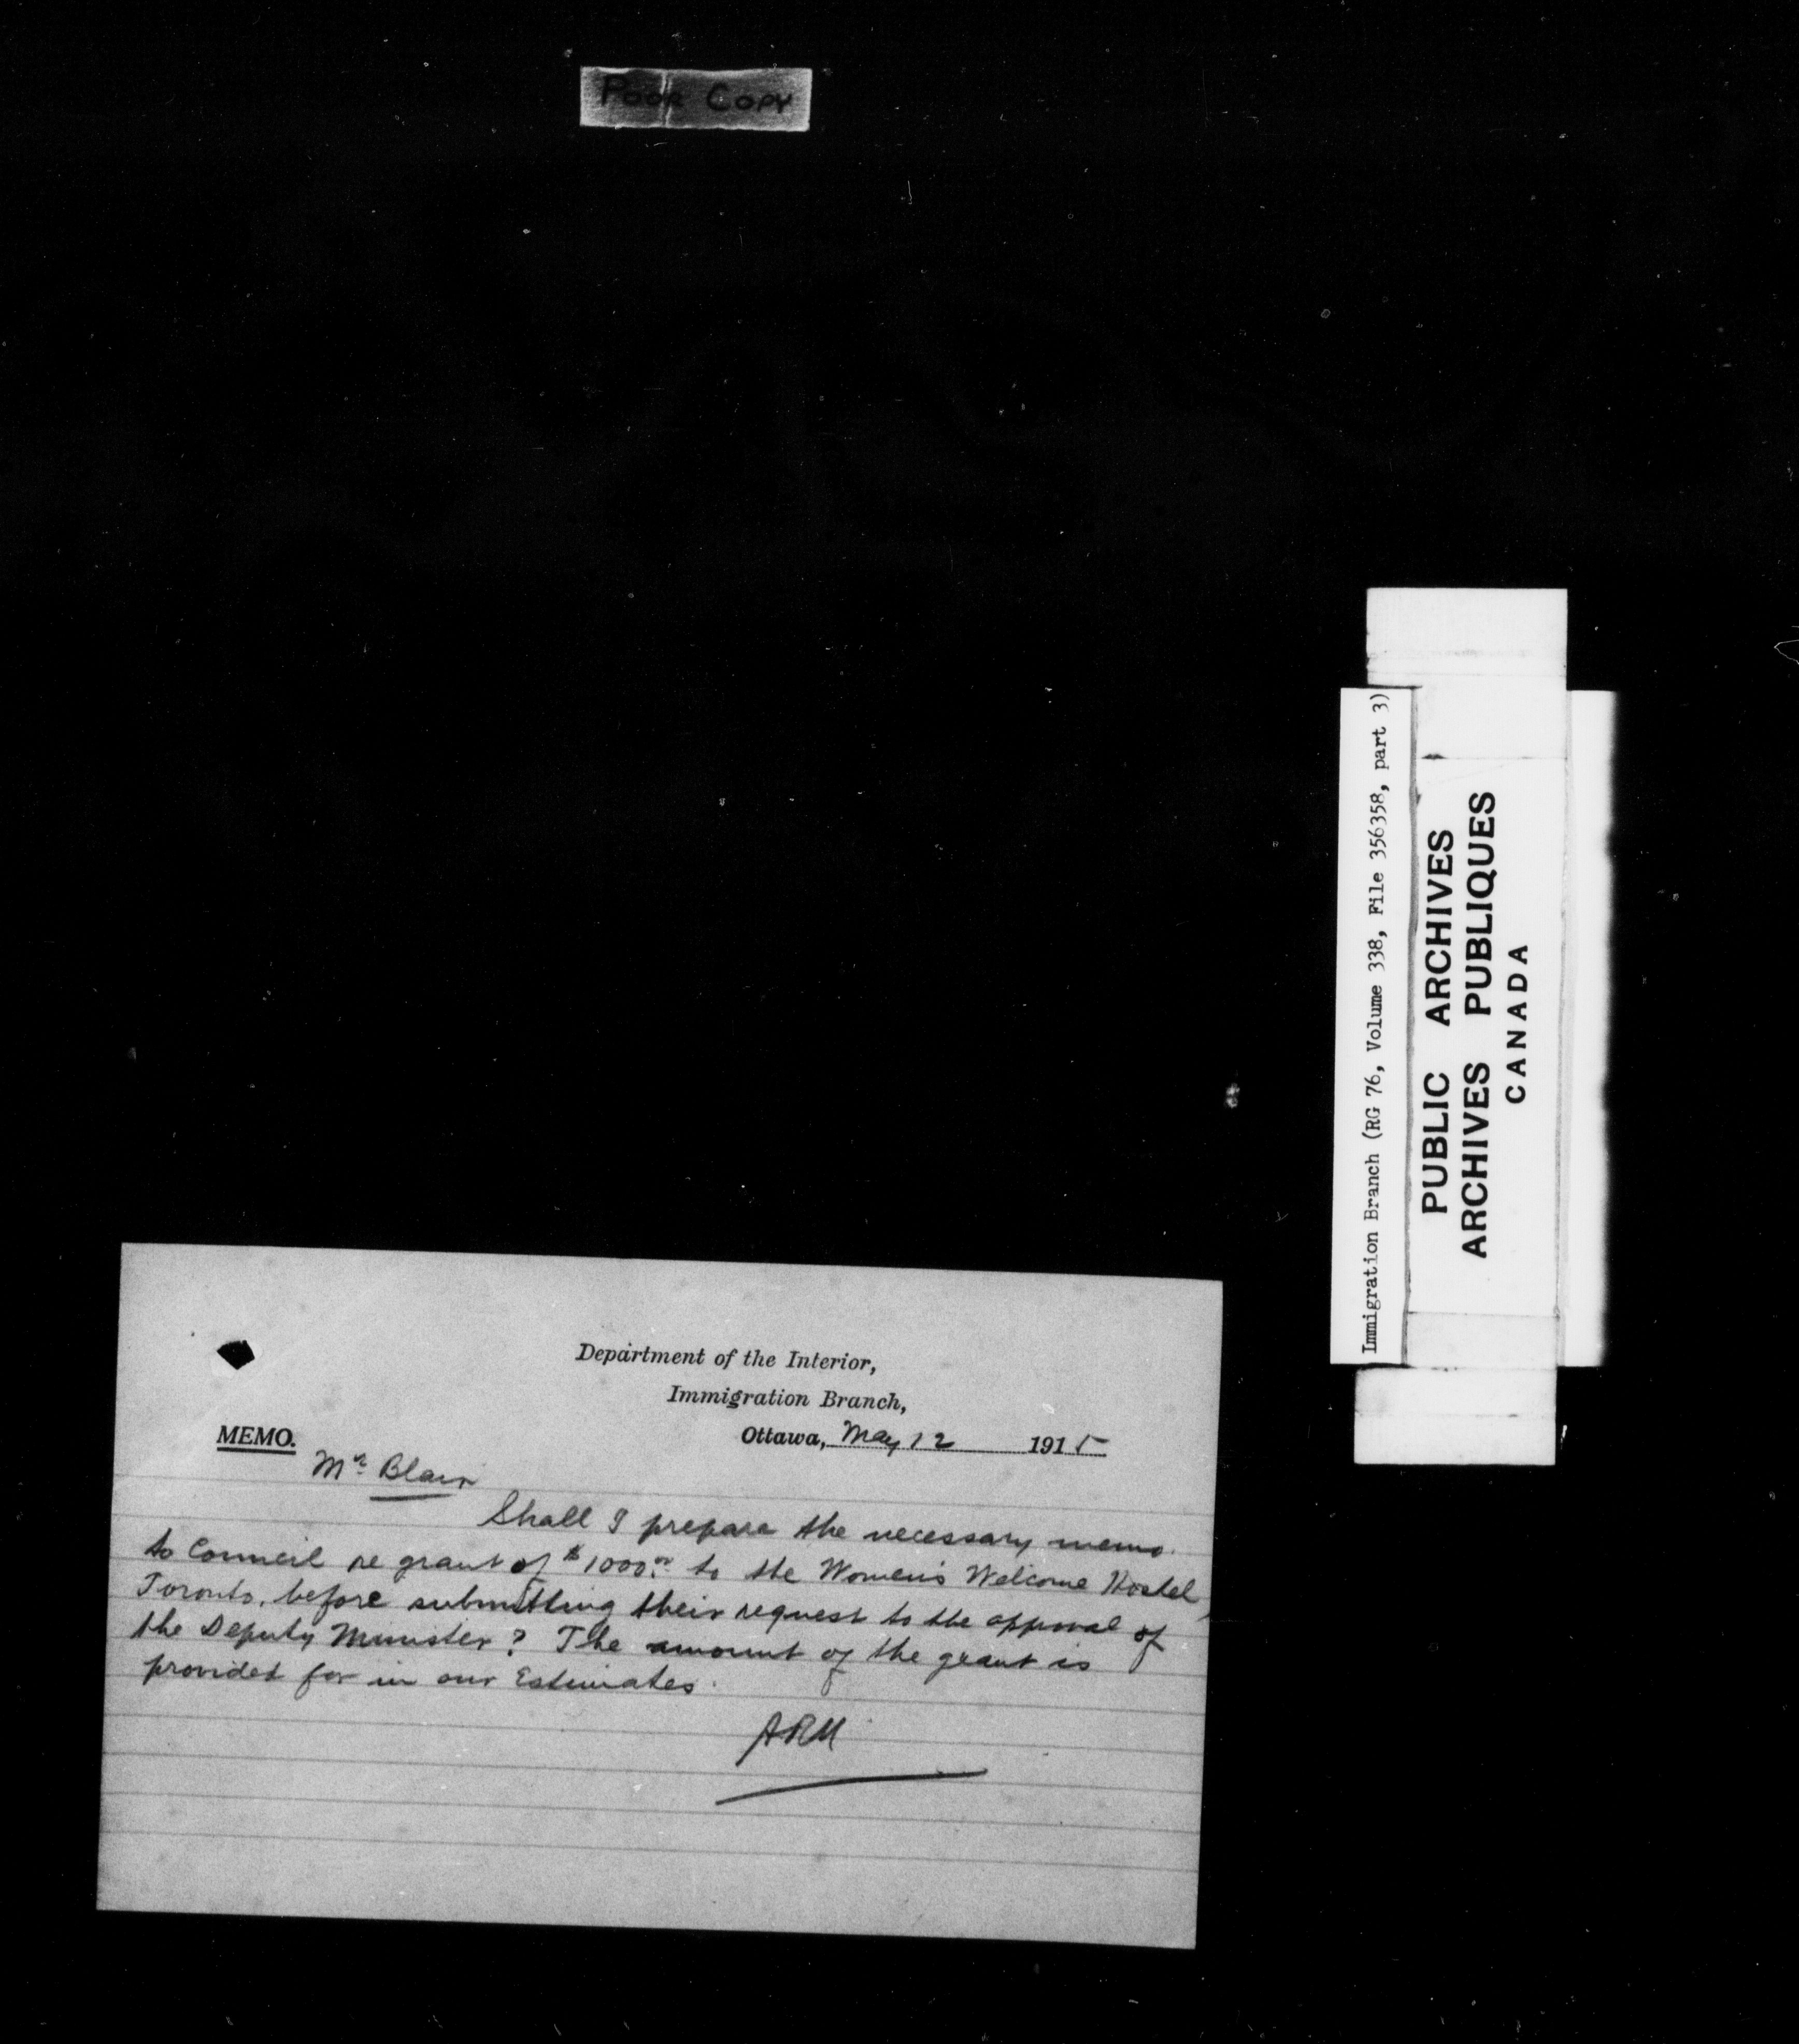 Poor Copy
Immigration Branch (RG 76, Volume 338, File 356358, part 3)
PUBLIC ARCHIVES
ARCHIVES PUBLIQUES
CANADA
Department of the Interior,
Immigration Branch,
MEMO. Ottawa, May 12 1915
Mr. Blair
Shall I prepare the necessary memo.
to Council re grant of $1000.00 to the Women's Welcome Hostel,
Toronto, before submitting their request to the approval of
the Deputy Minister? The amount of the grant is
provided for in our Estimates.
ARM